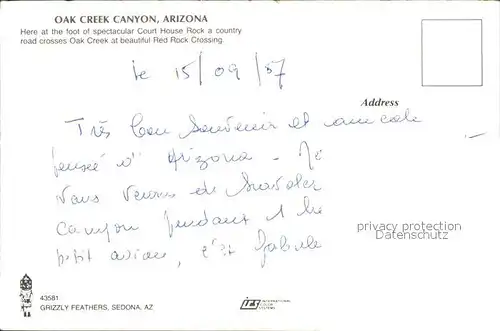 OAK CREEK CANYON, ARIZONA
Here at the foot of spectacular Court House Rock a country
road crosses Oak Creek at beautiful Red Rock Crossing.
le 15/09/87
Address
Très bon souvenir et amicale
pensée d'Arizona -
Vous venons de
canyon pendant 1 h
petit avion, c'est fabule
privacy protection
Datenschutz
43581
GRIZZLY FEATHERS, SEDONA, AZ
ICS INTERNATIONAL
COLOR
SYSTEMS